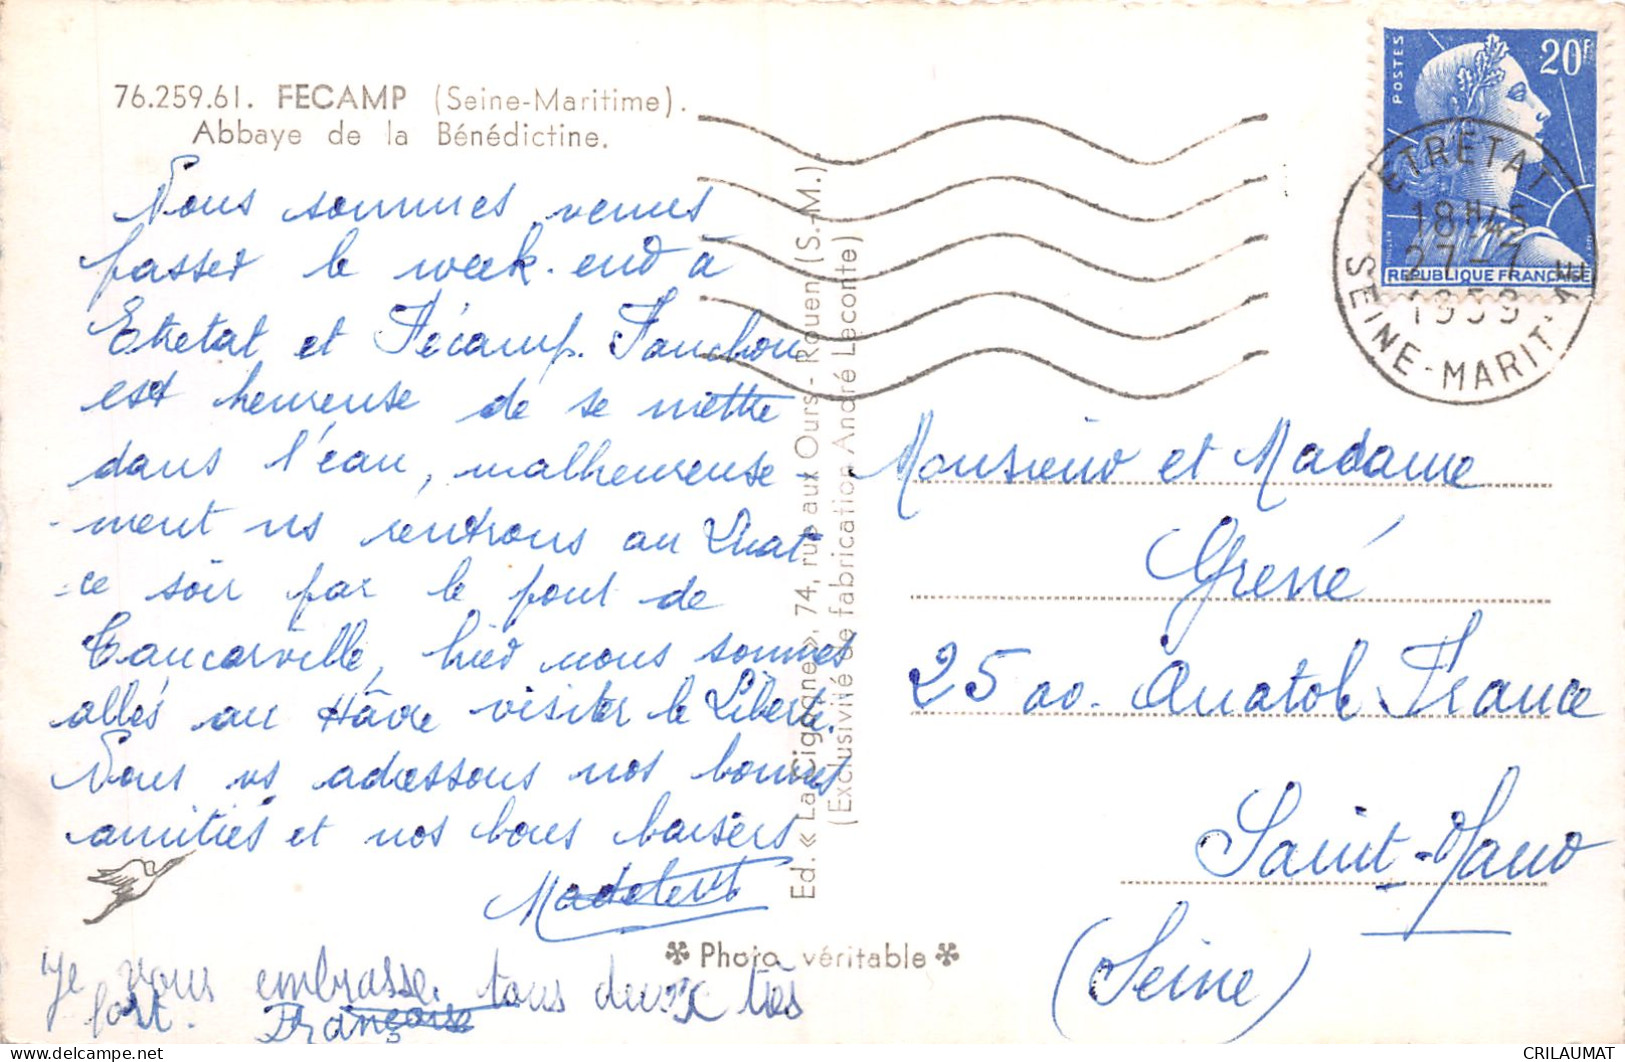 76.259.61. FECAMP (Seine-Maritime).
Abbaye de la Bénédictine.
Nous sommes venus
passer le week-end à
Etretat et Fécamp. Fanchon
est heureuse de se mettre
dans l'eau, malheureuse-
ment ns rentrons au
ce soir par le pont de
Tancarville, hier nous sommes
allés au Hâvre visiter le Liberté.
Nous vs adressons nos bonnes
amitiés et nos bons baisers
Je vous embrasse tous deux très
fort. Françoise
Ed. « La Cigogne », 74, rue aux Ours - Rouen (S.-M.).
(Exclusivité de fabrication André Leconte)
Photo véritable
POSTES
20F
REPUBLIQUE FRANÇAISE
ETRETAT
18H45
27-7
1959
SEINE-MARITIME
Monsieur et Madame
Grené
25 av. Anatole France
Saint-Maur
(Seine)
CRILAUMAT